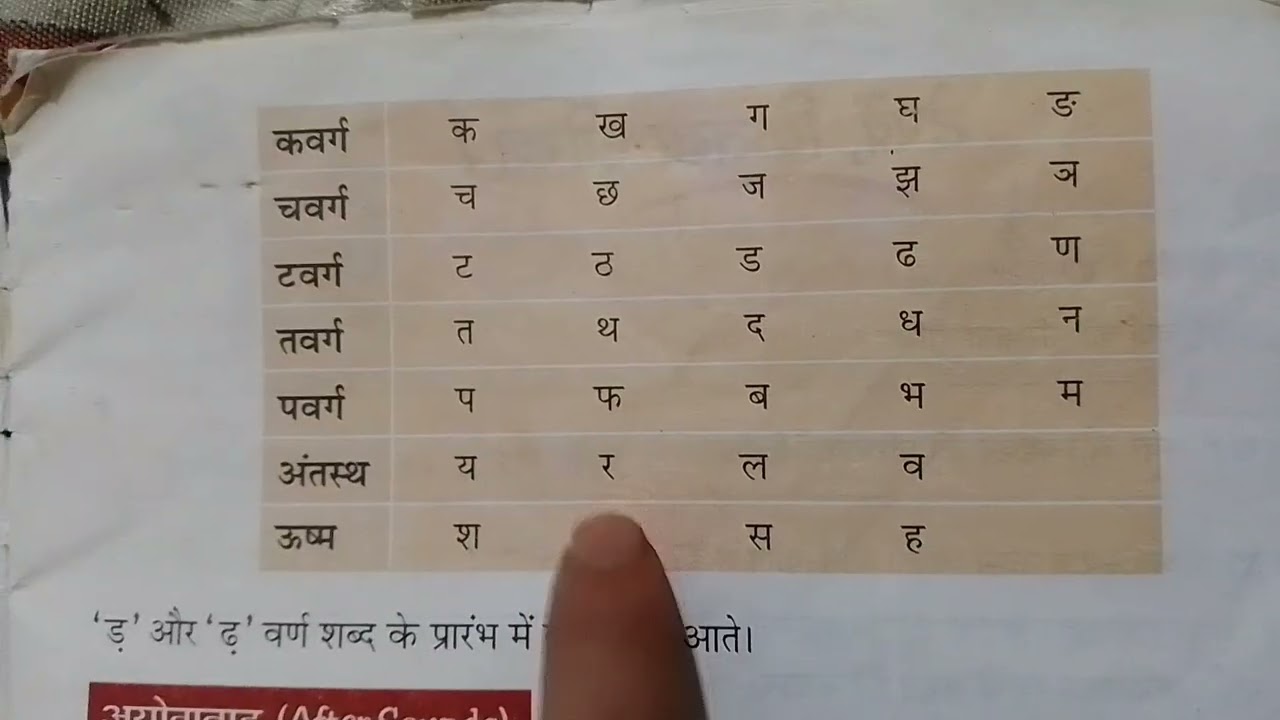 कवर्ग क ख ग घ ङ
चवर्ग च छ ज झ ञ
टवर्ग ट ठ ड ढ ण
तवर्ग त थ द ध न
पवर्ग प फ ब भ म
अंतस्थ य र ल व
ऊष्म श स ह
‘ड़’ और ‘ढ़’ वर्ण शब्द के प्रारंभ में आते।
(After Sounds)